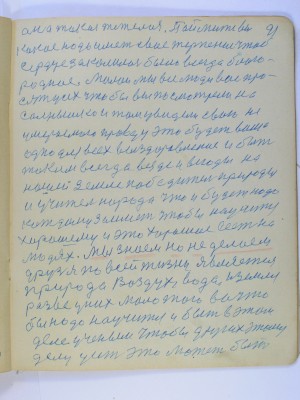 она такая тяжелая. Поймите вы 91
какое подымет свое терпения чтоб
сердце закоженое было всегда благо-
родное. Милыи мы все люди все про-
сят усих чтобы вы посмотрели на
солнышко и там увидели свою не
умераемую правду это будет ваше
одно для всех выздоровление и быть
таким всегда везде и всюды на
нашей Земле победители природы
и учителя народа что и будет надо
каждому заметит чтобы научить
хорошему и это хорошие сеет на
людях. Мы знаем но не делаем
друзья по всей жизни является
природа Воздух, вода, и земля
разве у них мало того ва что
бы надо научится и быть в этом
деле ученым чтобы других этому
делу учить это может быть